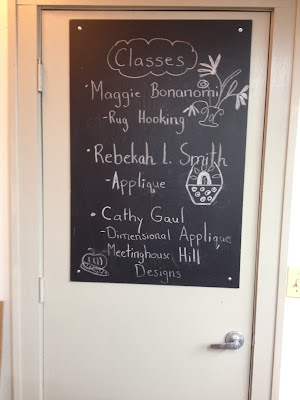 Classes
• Maggie Bonanomi
- Rug Hooking
• Rebekah L. Smith
- Applique
• Cathy Gaul
- Dimensional Applique
- Meetinghouse Hill
Designs